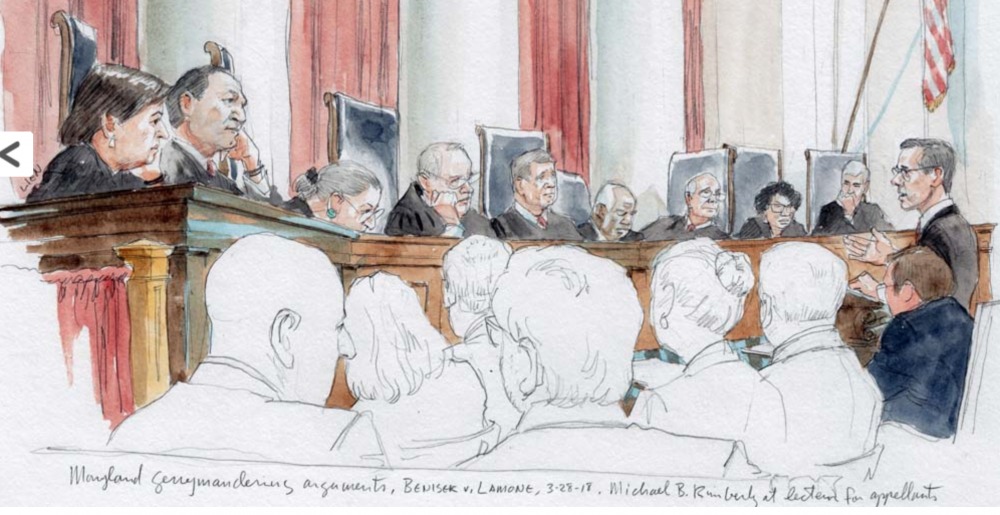 Maryland gerrymandering arguments, BENISEK v. LAMONE, 3-28-18. Michael B. Kimberly at lectern for appellants